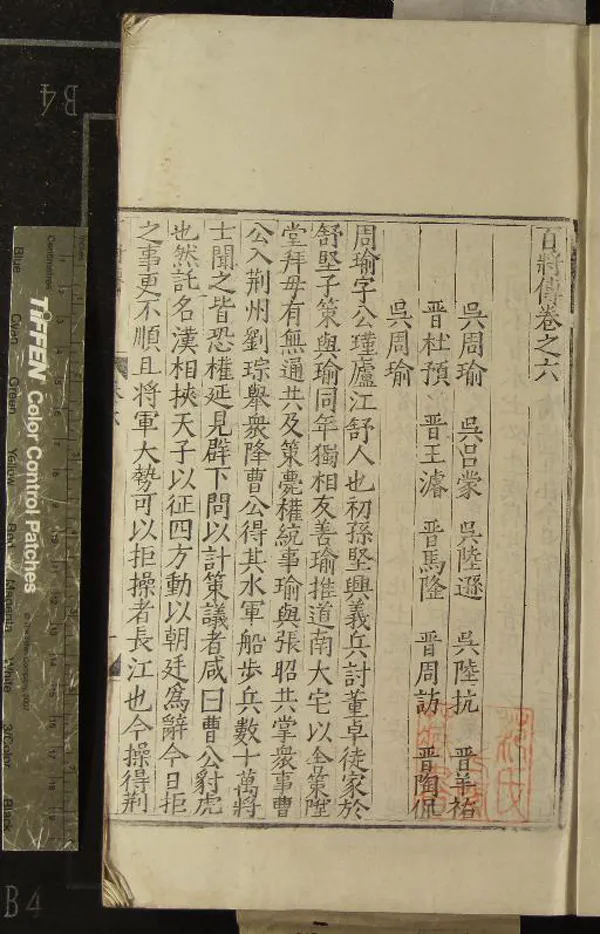 百將傳卷之六
吳周瑜 吳呂蒙 吳陸遜 吳陸抗 晉羊祜
晉杜預 晉王濬 晉馬隆 晉周訪 晉陶侃
吳周瑜
周瑜字公瑾廬江舒人也初孫堅興義兵討董卓徒家於
舒堅子策與瑜同年獨相友善瑜推道南大宅以舍策陞
堂拜母有無通共及策薨權統事瑜與張昭共掌衆事曹
公入荆州劉琮舉衆降曹公得其水軍船步兵數十萬將
士聞之皆恐權延見群下問以計策議者咸曰曹公豺虎
也然託名漢相挾天子以征四方動以朝廷爲辭今日拒
之事更不順且將軍大勢可以拒操者長江也今操得荆
B4
Inches
Centimetres
Blue
Cyan
Green
Yellow
Red
Magenta
White
3/Color
Black
TIFFEN Color Control Patches
B4